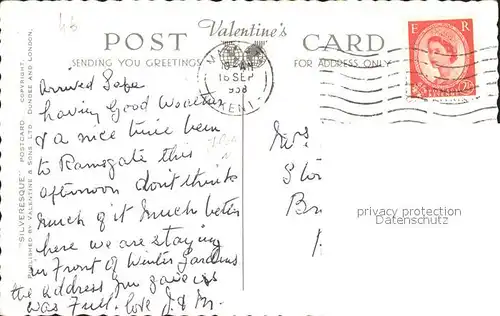 POST Valentine's CARD
SENDING YOU GREETINGS FOR ADDRESS ONLY
AM
16 SEP
KENT
E R
"SILVERESQUE" POSTCARD. COPYRIGHT.
PUBLISHED BY VALENTINE & SONS LTD DUNDEE AND LONDON.
Arrived Safe
having Good Weather
& a nice time been
to Ramsgate this
afternoon dont think
much of it much better
here we are staying
in Front of Winter Gardens
the address you gave us
was Full. love J & M.
privacy protection
Datenschutz